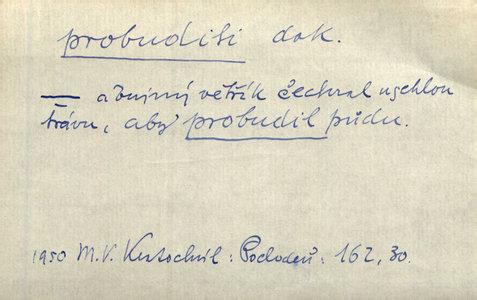 probudili dok.
— a bujný větřík čechral uschlou
trávu, aby probudil půdu.
1950 M.V. Kratochvíl: Pochodeň: 162, 30.